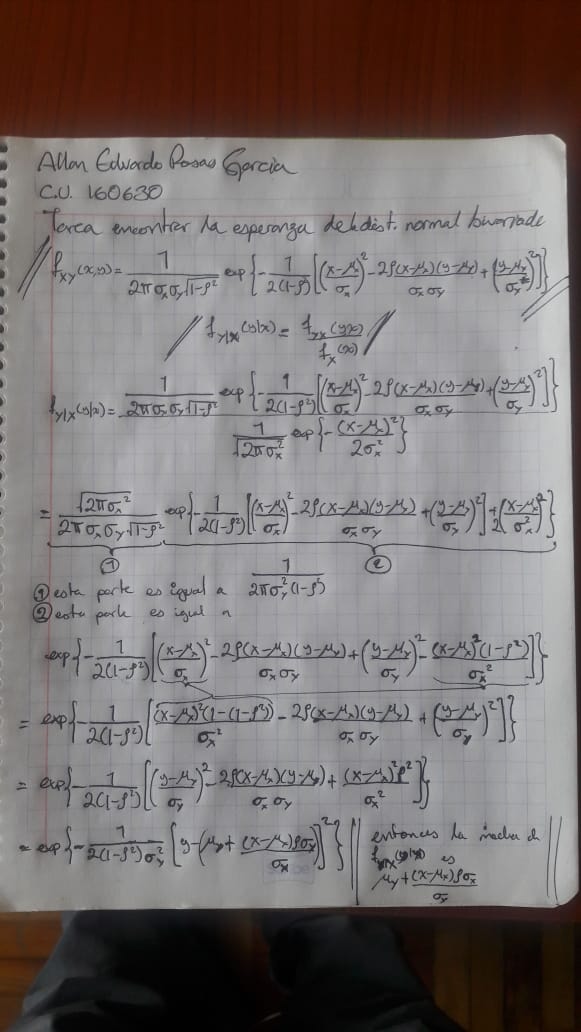 Allan Eduardo Rosas García
C.U. 160630
Tarea encontrar la esperanza de la dist. normal bivariada
// f_XY(x,y) = 1/(2πσ_xσ_y√(1-ρ²)) exp{-1/(2(1-ρ²)) [((x-μ_x)/σ_x)² - 2ρ(x-μ_x)(y-μ_y)/(σ_xσ_y) + ((y-μ_y)/σ_y)²]} //
// f_Y|X(y|x) = f_YX(yx)/f_X(x) //
f_Y|X(y|x) = 1/(2πσ_xσ_y√(1-ρ²)) exp{-1/(2(1-ρ²)) [((x-μ_x)/σ_x)² - 2ρ(x-μ_x)(y-μ_y)/(σ_xσ_y) + ((y-μ_y)/σ_y)²]} / (1/√(2πσ_x²) exp{-(x-μ_x)²/(2σ_x²)})
= √(2πσ_x²)/(2πσ_xσ_y√(1-ρ²)) exp{-1/(2(1-ρ²)) [((x-μ_x)/σ_x)² - 2ρ(x-μ_x)(y-μ_y)/(σ_xσ_y) + ((y-μ_y)/σ_y)²] + (x-μ_x)²/(2σ_x²)}
① ②
① esta parte es igual a 1/(2πσ_y²(1-ρ²))
② esta parte es igual a
exp{-1/(2(1-ρ²)) [((x-μ_x)/σ_x)² - 2ρ(x-μ_x)(y-μ_y)/(σ_xσ_y) + ((y-μ_y)/σ_y)² - (x-μ_x)²(1-ρ²)/σ_x²]}
= exp{-1/(2(1-ρ²)) [(x-μ_x)²(1-(1-ρ²))/σ_x² - 2ρ(x-μ_x)(y-μ_y)/(σ_xσ_y) + ((y-μ_y)/σ_y)²]}
= exp{-1/(2(1-ρ²)) [((y-μ_y)/σ_y)² - 2ρ(x-μ_x)(y-μ_y)/(σ_xσ_y) + (x-μ_x)²ρ²/σ_x²]}
= exp{-1/(2(1-ρ²)σ_y²) [y-(μ_y + (x-μ_x)ρσ_y/σ_x)]²} ||
entonces la media de
f_Y|X(y|x) es
μ_y + (x-μ_x)ρσ_x/σ_y ||